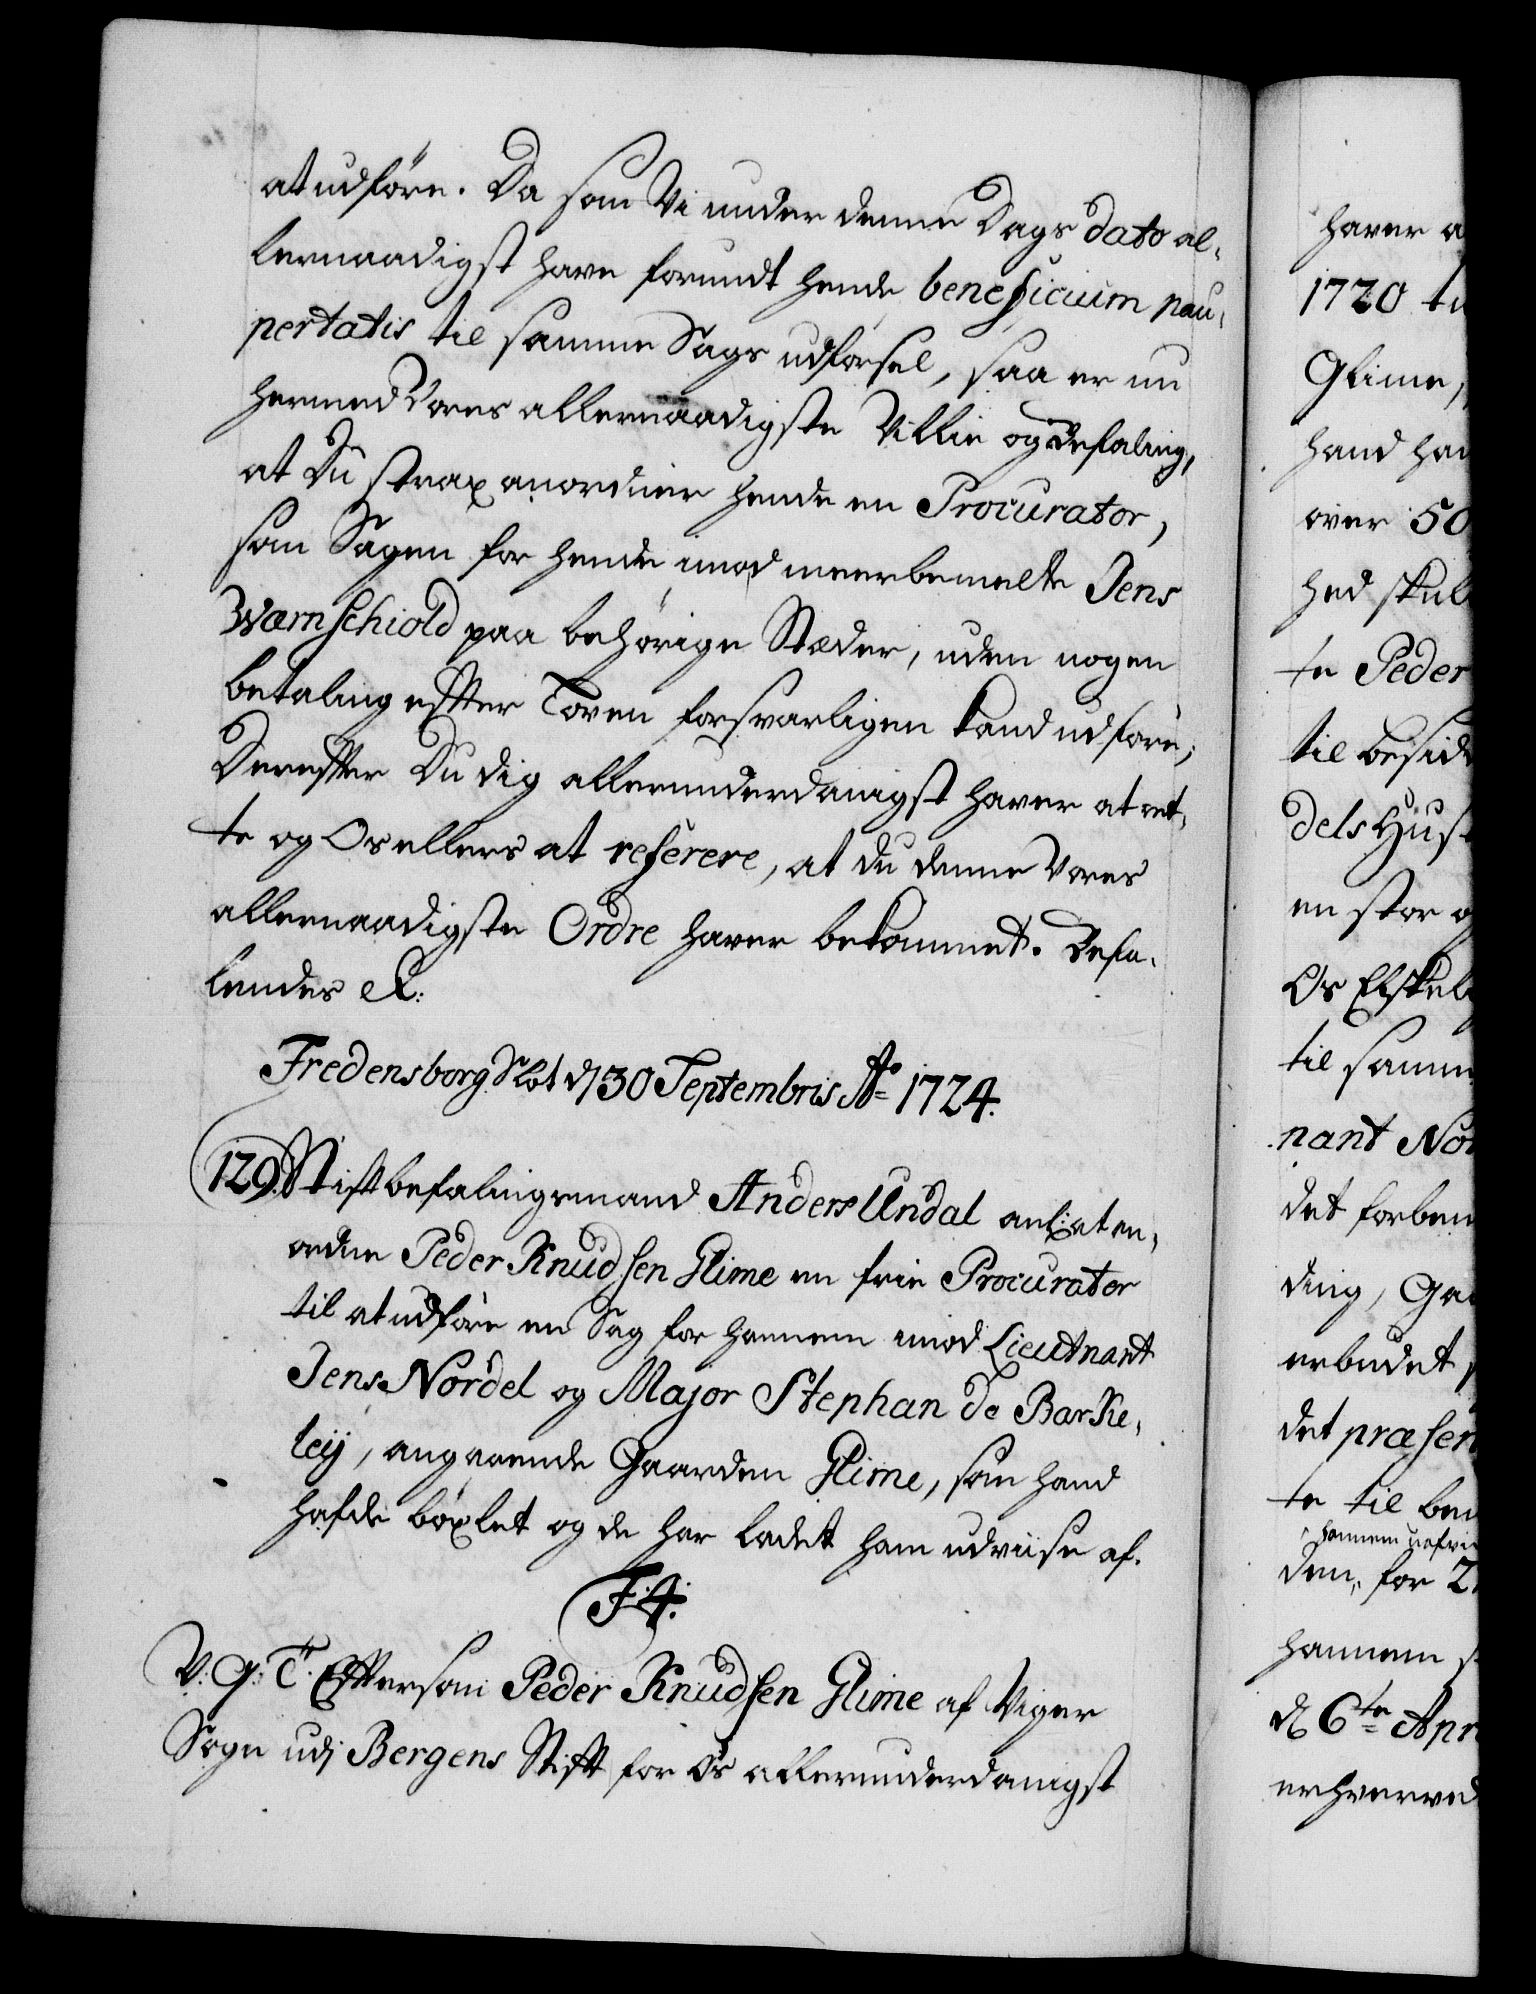 at udföre. Da som Vi under denne Dags dato al-
lernaadigst have forundt hende beneficium pau-
pertatis til samme Sags udförsel, saa er nu
hermed Vores allernaadigste Villie og Befaling,
at Du strax anordner hende en Procurator,
som Sagen for hende imod meerbemelte Jens
Warnschiold paa behörige Stæder, uden nogen
betaling effter Loven forsvarligen kand udföre;
Dereffter Du dig allerunderdanigst haver at ret-
te og Os ellers at referere, at du denne Vores
allernaadigste Ordre haver bekommet. Befa-
lendes &:
Fredensborg Slot d 30 Septembris Aō 1724.
129. Stiftbefalingsmand Anders Undal anl: at an-
ordne Peder Knudsen Glime en frie Procurator
til at udföre en Sag for hannem imod Lieutnant
Jens Nordel og Major Stephan de Barke-
leÿ, angaaende Gaarden Glime, som hand
hafde böxlet og de har ladet ham udviise af.
F:4.
V: G: T. Efftersom Peder Knudsen Glime af Viger
Sogn udj Bergens Stift for Os allerunderdanigst
haver a
1720 ti
Glime,
hand ha
over 50
hed skul
te Peder
til besid
dels Hust
en stor o
Os Elskel
til samm
nant Nor
det forben
ding, Ga
erbudet
det præsen
te til be
hannem
den, for 2
hannem s
d 6te Apr
erhverved